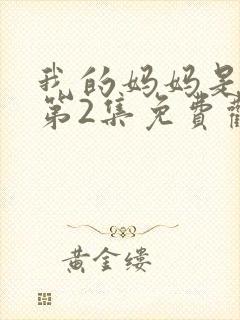 我的妈妈是
第2集免费
黄金缕